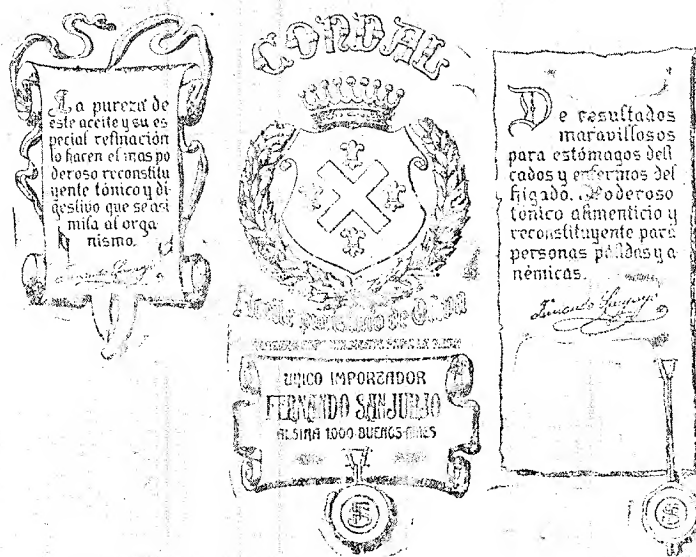 La pureza de
este aceite y su es
pecial refinación
lo hacen el mas po
deroso reconstitu
yente tónico y di
gestivo que se asi
mila al orga
nismo.
CONDAL
de
UNICO IMPORTADOR
FERNANDO SANJURJO
ALSINA 1.000 BUENOS AIRES
FS
De resultados
maravillosos
para estómagos deli
cados y enfermos del
hígado. Poderoso
tónico alimenticio y
reconstituyente para
personas pálidas y a
némicas.
Fernando Sanjurjo
FS